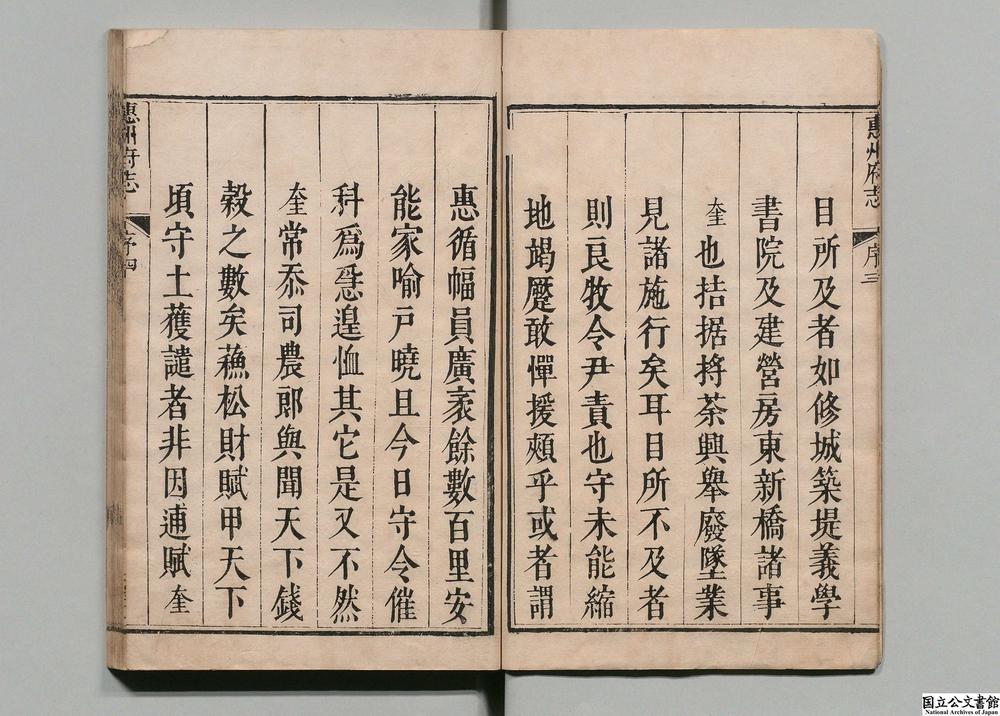 惠州府志
序三
目所及者如修城築堤義學
書院及建營房東新橋諸事
奎也拮据捋荼興舉廢墜業
見諸施行矣耳目所不及者
則良牧令尹責也守未能縮
地竭蹷敢憚援頰乎或者謂
惠循幅員廣袤餘數百里安
能家喻戸曉且今日守令催
科爲惡遑恤其它是又不然
奎常忝司農郎與聞天下錢
穀之數矣蘓松財賦甲天下
頃守土獲譴者非因逋賦奎
惠州府志
序四
国立公文書館
National Archives of Japan